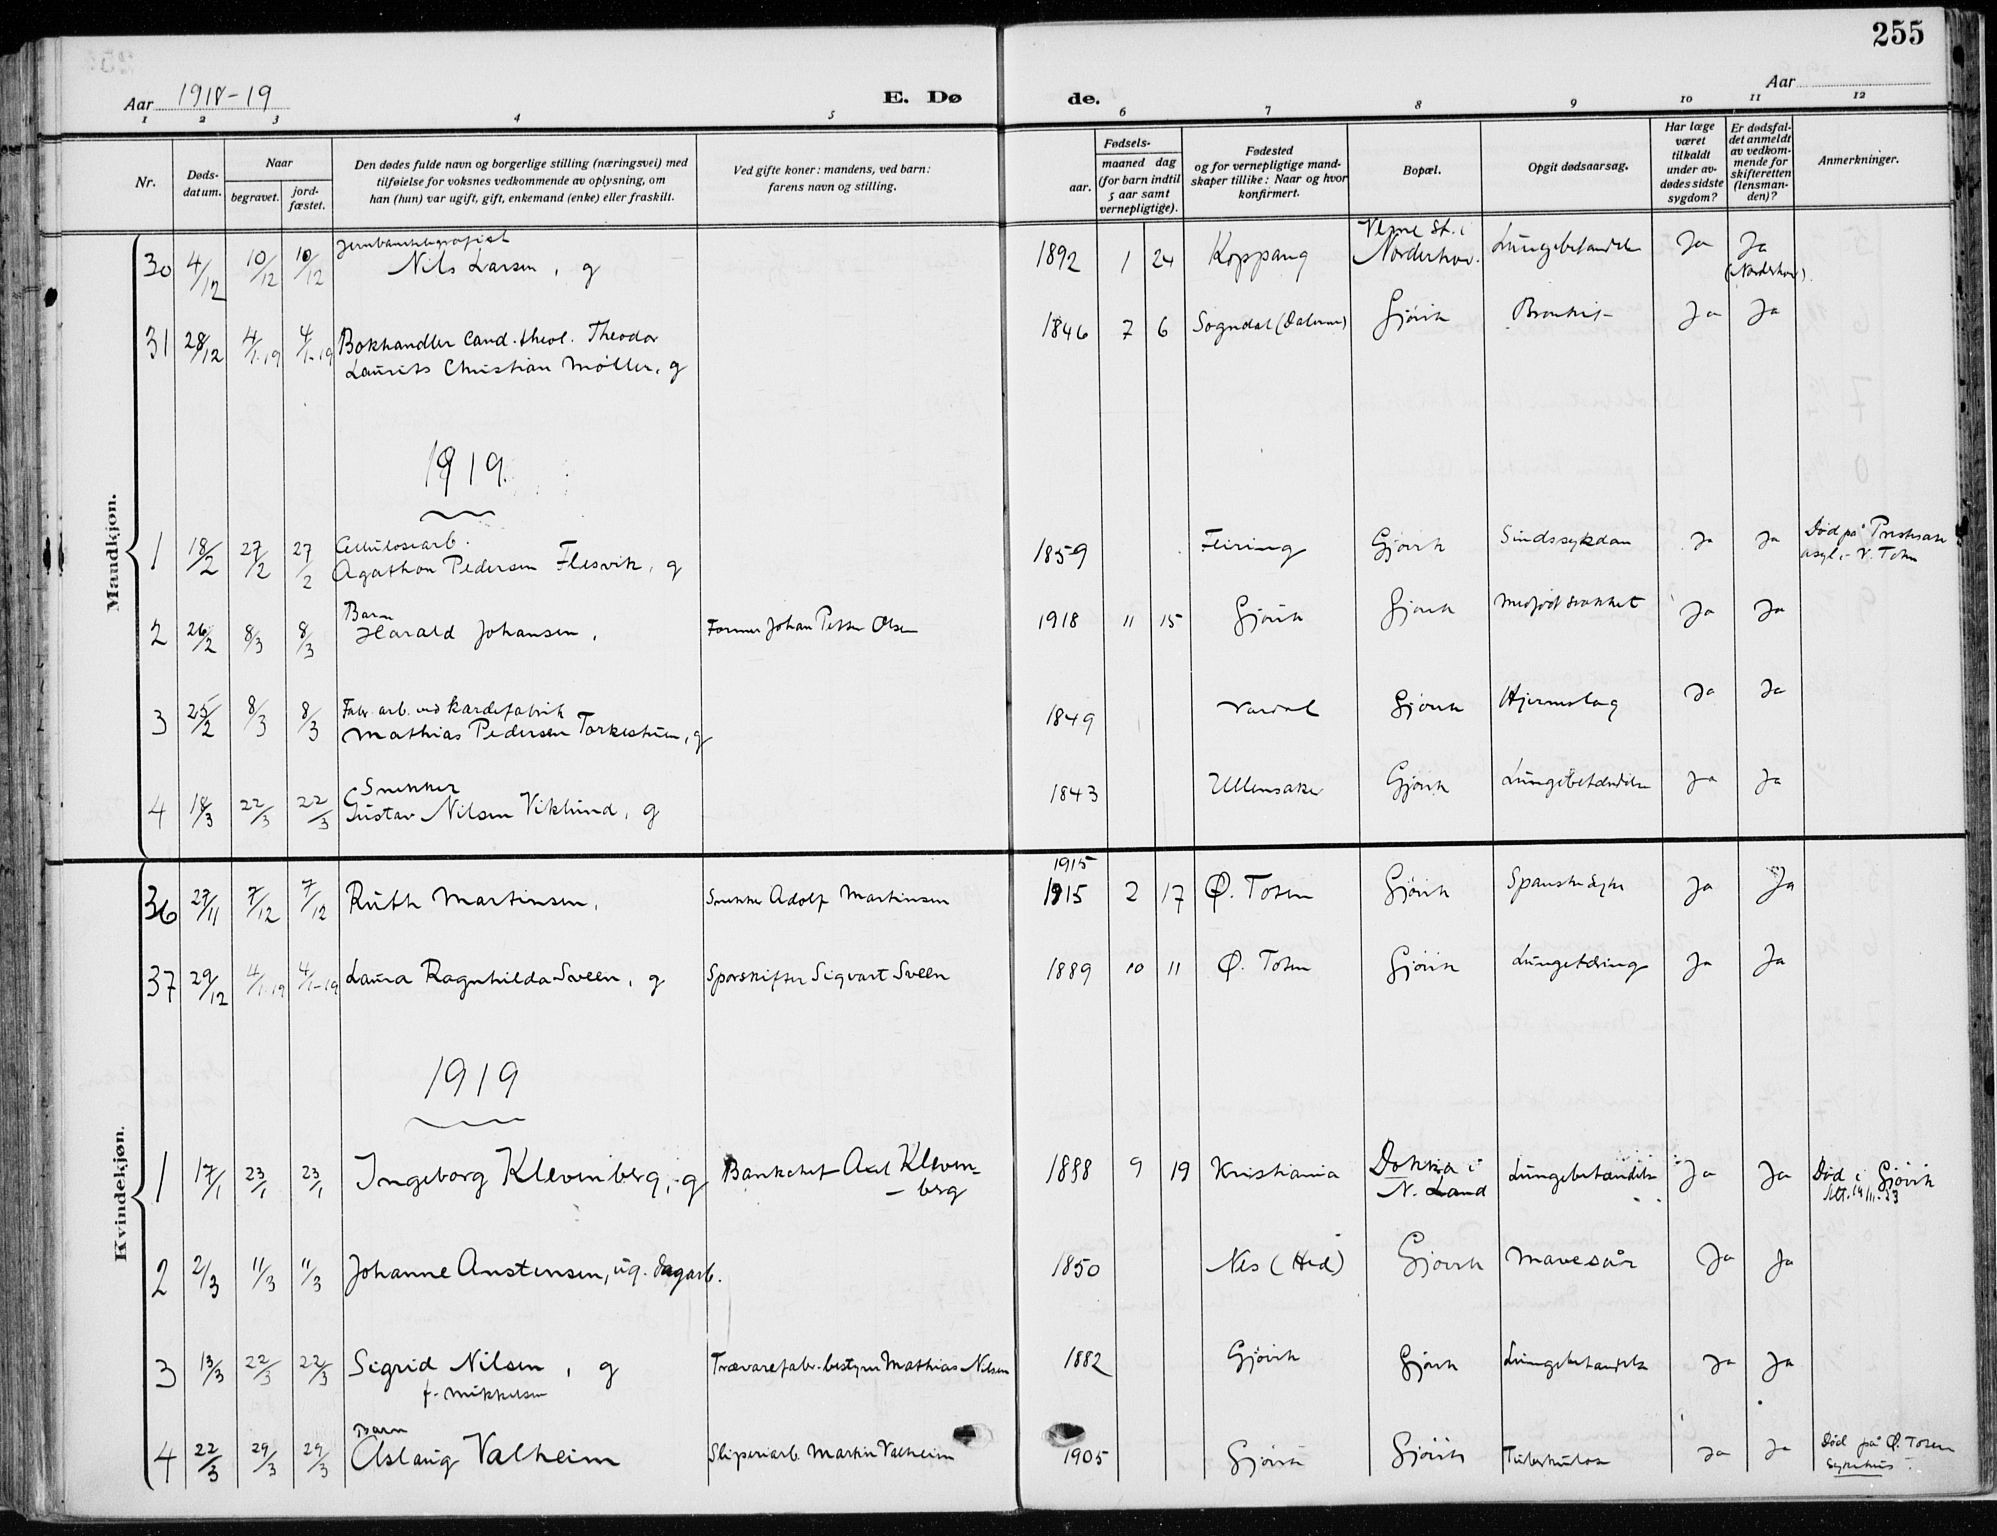 255
Aar 1918-19 E. Dø de. Aar
1 2 3 4 5 6 7 8 9 10 11 12
Nr.
Døds-
datum.
Naar
begravet.
jord-
fæstet.
Den dødes fulde navn og borgerlige stilling (næringsvei) med
tilføielse for voksnes vedkommende av oplysning, om
han (hun) var ugift, gift, enkemand (enke) eller fraskilt.
Ved gifte koner: mandens, ved barn:
farens navn og stilling.
Fødsels-
aar.
maaned dag
(for barn indtil
5 aar samt
vernepligtige).
Fødested
og for vernepligtige mand-
skaper tillike: Naar og hvor
konfirmert.
Bopæl.
Opgit dødsaarsag.
Har læge
været
tilkaldt
under av-
dødes sidste
sygdom?
Er dødsfal-
det anmeldt
av vedkom-
mende for
skifteretten
(lensman-
den)?
Anmerkninger.
Mandkjøn.
Jernbanetelegrafist Veme St. i
30 4/12 10/12 10/12 Nils Larsen, g 1892 1 24 Koppang Norderhov. Lungebetændelse Ja Ja
(Norderhov).
31 28/12 4/1-19 4/1-19 Bokhandler Cand. theol. Theodor 1846 7 6 Sogndal (Dalerne) Gjøvik Bronkit Ja Ja
Laurits Christian Møller, g
1919.
Cellulosearb.
1 18/2 27/2 27/2 Agathon Pedersen Flesvik, g 1859 Feiring Gjøvik Sindssykdom Ja Ja Død på Presteseter
asyl i V. Toten
Barn
2 26/2 8/3 8/3 Harald Johansen, Former Johan Petter Olsen 1918 11 15 Gjøvik Gjøvik Medfødt svakhet Ja Ja
Fabr. arb. ved kardefabrik
3 25/2 8/3 8/3 Mathias Pedersen Torkestuen, g 1849 Vardal Gjøvik Hjerneslag Ja Ja
Snekker
4 18/3 22/3 22/3 Gustav Nilsen Viklund, g 1843 Ullensaker Gjøvik Lungebetændelse Ja Ja
Kvindekjøn.
1915
36 27/11 7/12 7/12 Ruth Martinsen, Snekker Adolf Martinsen 1915 2 17 Ø. Toten Gjøvik Spanske syke Ja Ja
37 29/12 4/1-19 4/1-19 Laura Ragnhilda Sveen, g Sporskifter Sigvart Sveen 1889 10 11 Ø. Toten Gjøvik Lungetæring Ja Ja
1919
1 17/1 23/1 23/1 Ingeborg Klevenberg, g Bankchef Axel Kleven- 1888 9 19 Kristiania Dokka i Lungebetændelse Ja Ja Død i Gjøvik
- berg N. Land
2 2/3 11/3 11/3 Johanne Anstensen, ug. dagarb. 1850 Nes (Hed) Gjøvik Mavesår Ja Ja
3 13/3 22/3 22/3 Sigrid Nilsen, g Trævarefabr.bestyrer Mathias Nilsen 1882 Gjøvik Gjøvik Lungebetændelse Ja Ja
f. Mikkelsen
Barn
4 22/3 29/3 29/3 Aslaug Valheim Sliperiarb. Martin Valheim 1905 Gjøvik Gjøvik Tuberkulose Ja Ja Død på Ø. Toten
sykehus.